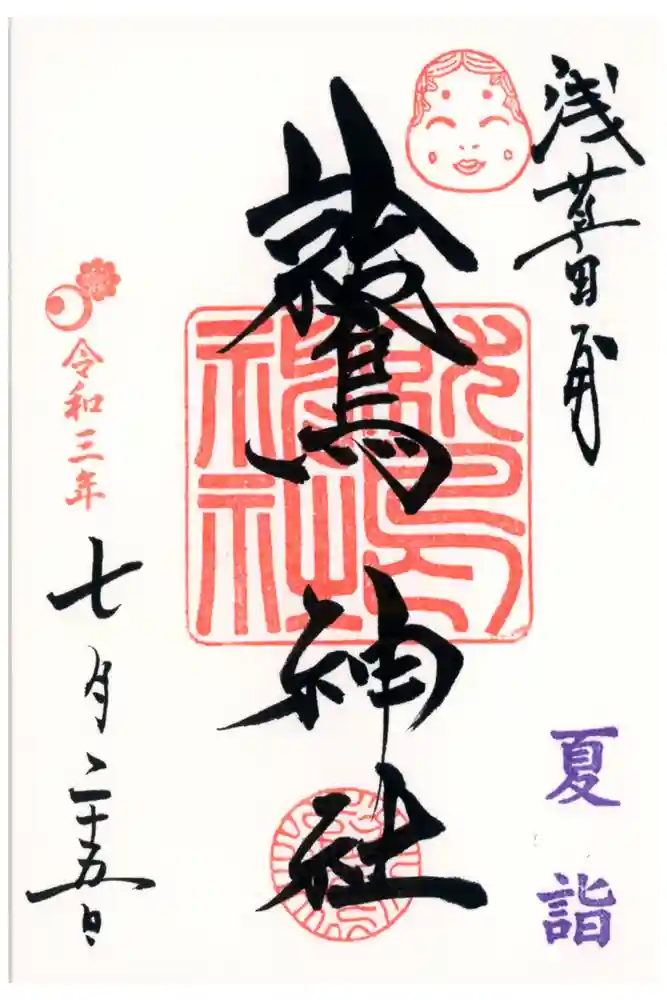 浅草田甫
鷲神社
令和三年
七月二十五日
夏詣